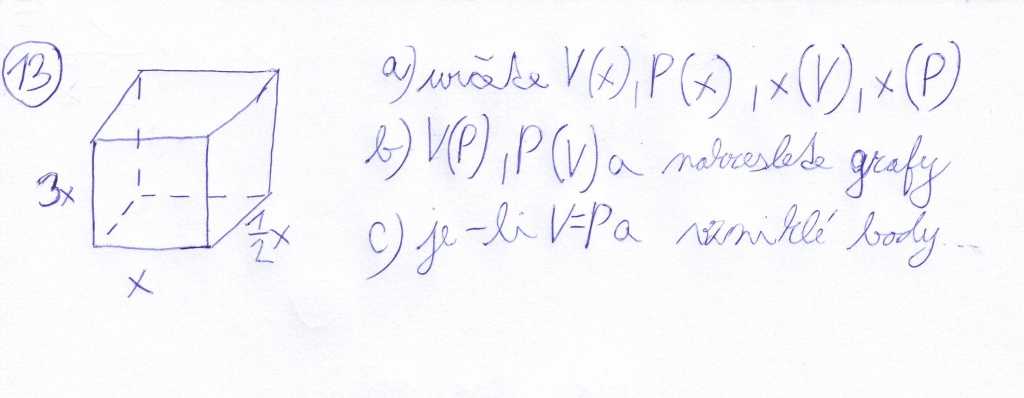 13
a) určete V(x), P(x), x(V), x(P)
b) V(P), P(V) a nakreslete grafy
c) je-li V=P a vzniklé body...
3x
1/2x
x